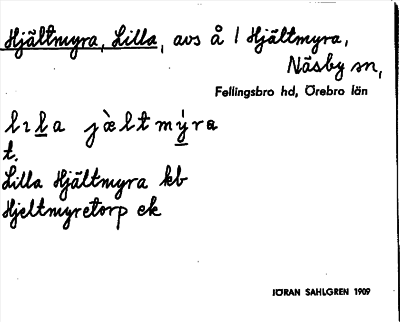 Hjältmyra, Lilla, avs å 1 Hjältmyra,
Näsby sn,
Fellingsbro hd, Örebro län
lıla jàltmýra
t.
Lilla Hjältmyra kb
Hjeltmyretorp ek
JÖRAN SAHLGREN 1909